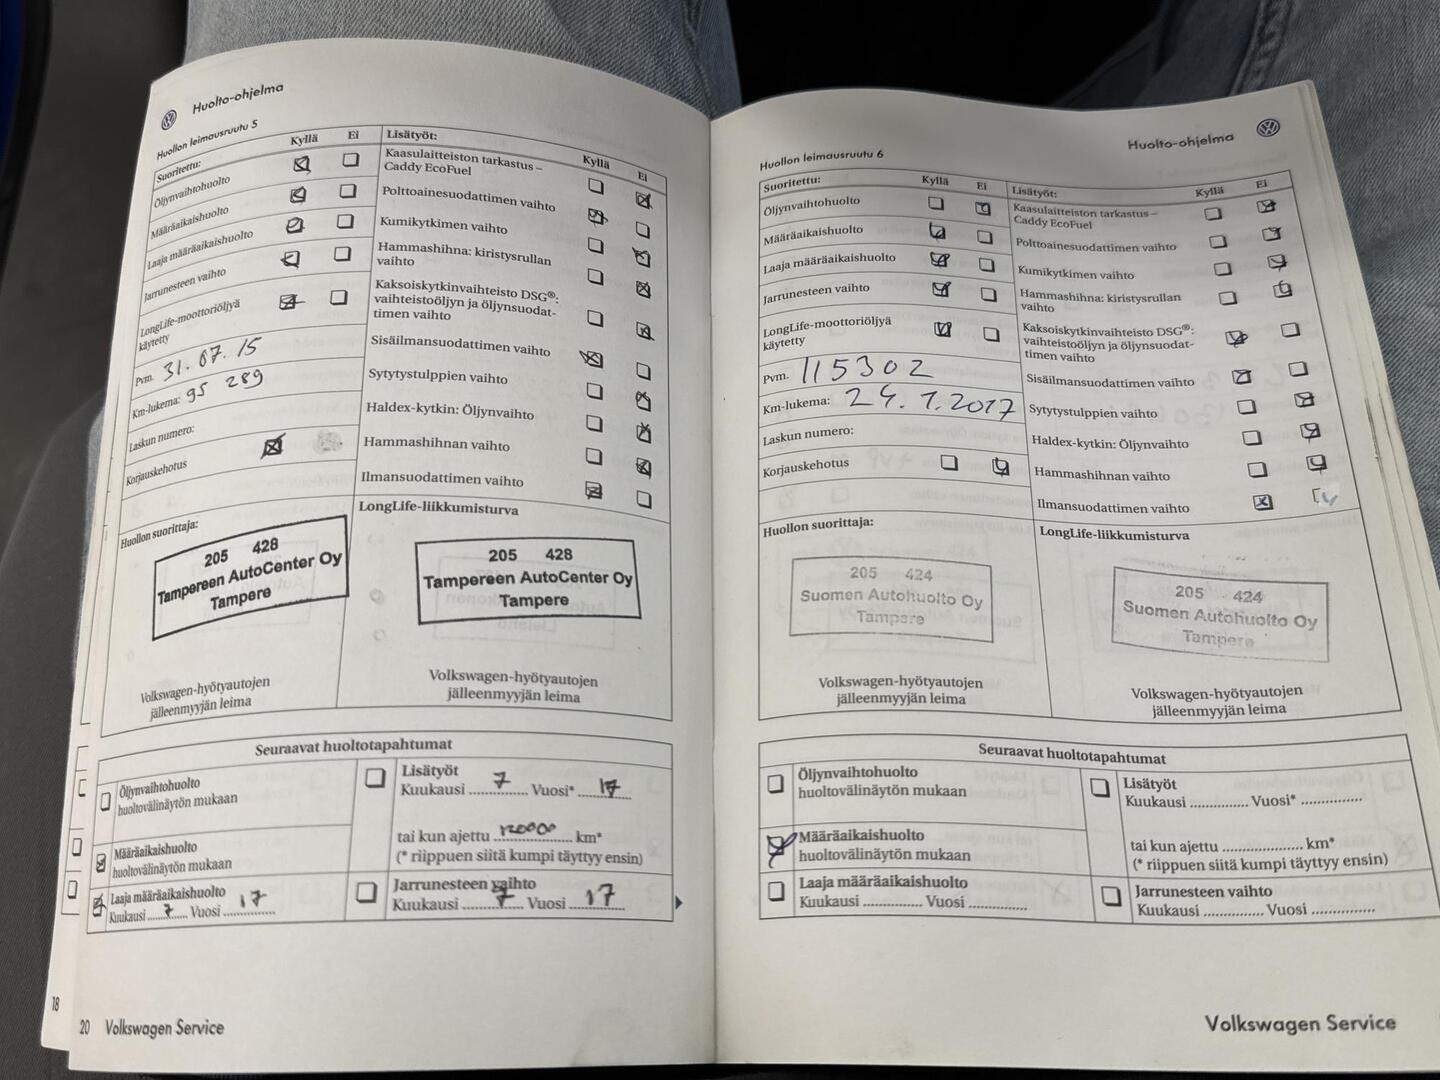 Huolto-ohjelma
Huollon leimausruutu 5
Suoritettu: Kyllä Ei
Öljynvaihtohuolto
Määräaikaishuolto
Laaja määräaikaishuolto
Jarrunesteen vaihto
LongLife-moottoriöljyä
käytetty
Pvm. 31.07.15
Km-lukema: 95 289
Laskun numero:
Korjauskehotus
Lisätyöt: Kyllä Ei
Kaasulaitteiston tarkastus –
Caddy EcoFuel
Polttoainesuodattimen vaihto
Kumikytkimen vaihto
Hammashihna: kiristysrullan
vaihto
Kaksoiskytkinvaihteisto DSG®:
vaihteistoöljyn ja öljynsuodat-
timen vaihto
Sisäilmansuodattimen vaihto
Sytytystulppien vaihto
Haldex-kytkin: Öljynvaihto
Hammashihnan vaihto
Ilmansuodattimen vaihto
Huollon suorittaja:
205 428
Tampereen AutoCenter Oy
Tampere
Volkswagen-hyötyautojen
jälleenmyyjän leima
LongLife-liikkumisturva
205 428
Tampereen AutoCenter Oy
Tampere
Volkswagen-hyötyautojen
jälleenmyyjän leima
Seuraavat huoltotapahtumat
Öljynvaihtohuolto
huoltovälinäytön mukaan
Määräaikaishuolto
huoltovälinäytön mukaan
Laaja määräaikaishuolto
Kuukausi ...7... Vuosi ...17...
Lisätyöt
Kuukausi ...7... Vuosi* ...17...
tai kun ajettu ...120000... km*
(* riippuen siitä kumpi täyttyy ensin)
Jarrunesteen vaihto
Kuukausi ...7... Vuosi ...17...
18
20 Volkswagen Service
Huolto-ohjelma
Huollon leimausruutu 6
Suoritettu: Kyllä Ei
Öljynvaihtohuolto
Määräaikaishuolto
Laaja määräaikaishuolto
Jarrunesteen vaihto
LongLife-moottoriöljyä
käytetty
Pvm. 115302
Km-lukema: 24.1.2017
Laskun numero:
Korjauskehotus
Lisätyöt: Kyllä Ei
Kaasulaitteiston tarkastus –
Caddy EcoFuel
Polttoainesuodattimen vaihto
Kumikytkimen vaihto
Hammashihna: kiristysrullan
vaihto
Kaksoiskytkinvaihteisto DSG®:
vaihteistoöljyn ja öljynsuodat-
timen vaihto
Sisäilmansuodattimen vaihto
Sytytystulppien vaihto
Haldex-kytkin: Öljynvaihto
Hammashihnan vaihto
Ilmansuodattimen vaihto
Huollon suorittaja:
205 424
Suomen Autohuolto Oy
Tampere
Volkswagen-hyötyautojen
jälleenmyyjän leima
LongLife-liikkumisturva
205 424
Suomen Autohuolto Oy
Tampere
Volkswagen-hyötyautojen
jälleenmyyjän leima
Seuraavat huoltotapahtumat
Öljynvaihtohuolto
huoltovälinäytön mukaan
Määräaikaishuolto
huoltovälinäytön mukaan
Laaja määräaikaishuolto
Kuukausi ............... Vuosi ...............
Lisätyöt
Kuukausi ............... Vuosi* ...............
tai kun ajettu .................... km*
(* riippuen siitä kumpi täyttyy ensin)
Jarrunesteen vaihto
Kuukausi ............... Vuosi ...............
Volkswagen Service